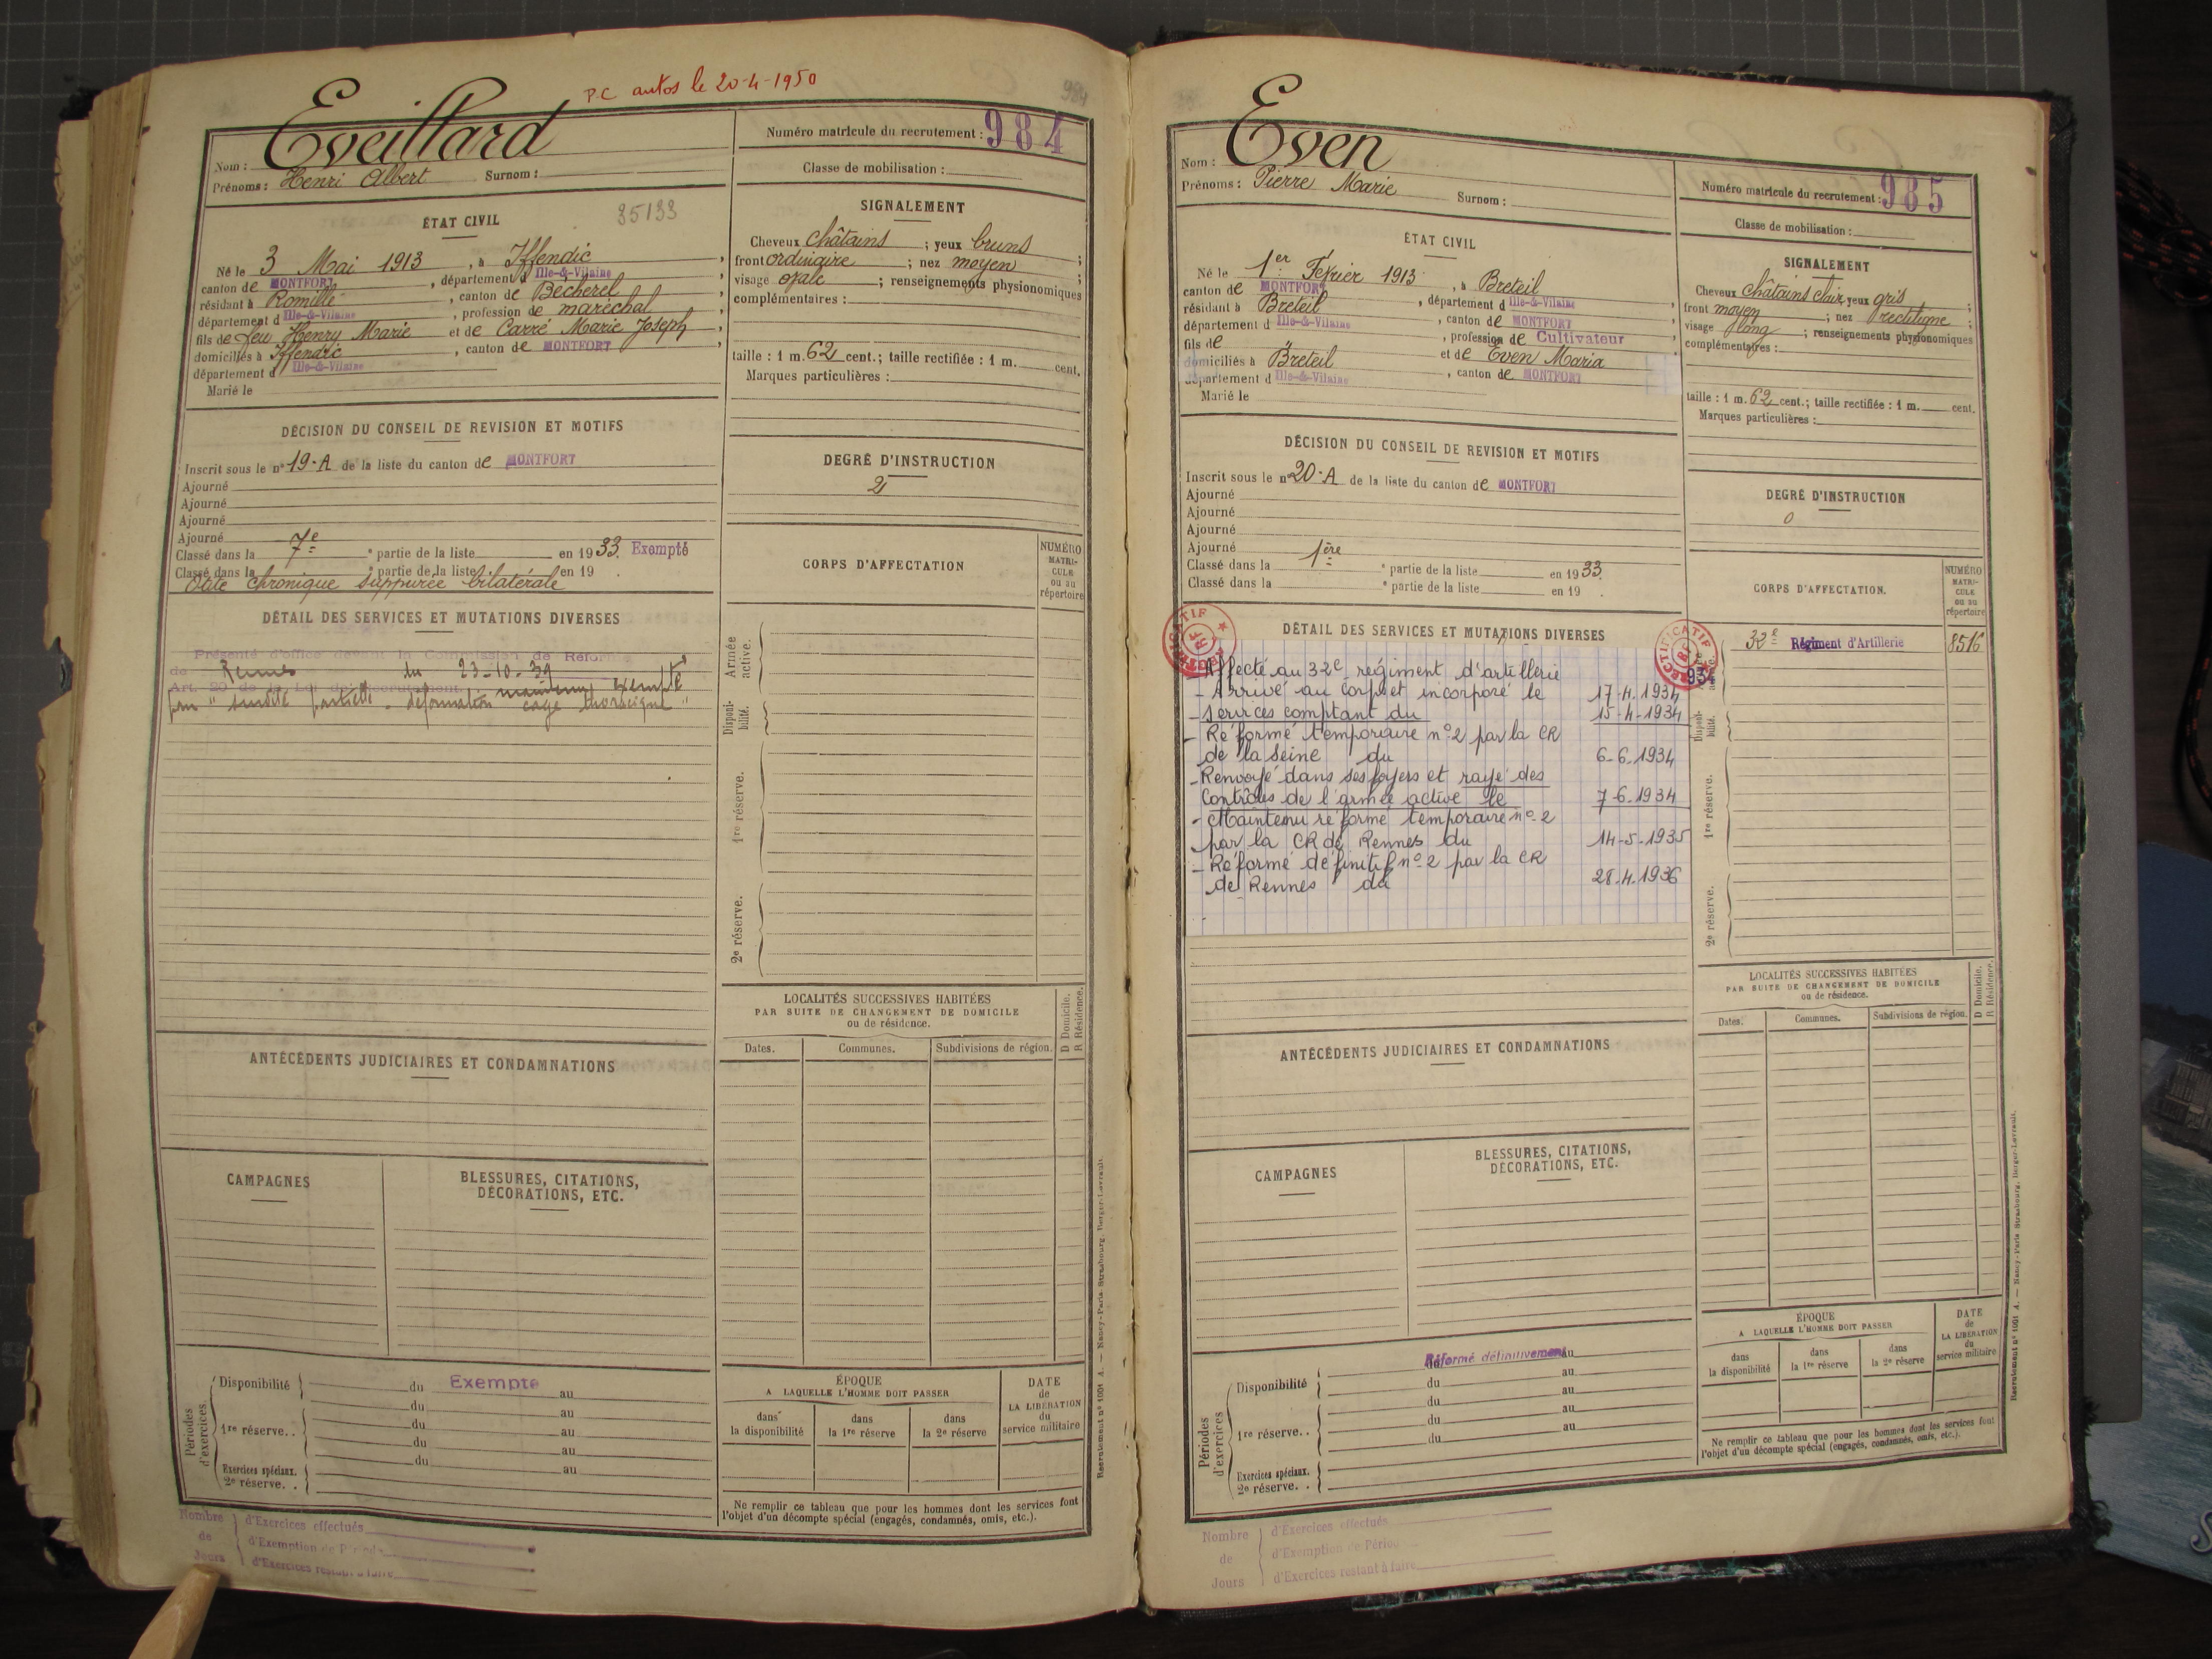 P.C autos le 20-4-1950
984
Nom : Eveillard
Prénoms : Henri Albert Surnom :
Numéro matricule du recrutement : 984
Classe de mobilisation :
ÉTAT CIVIL
35133
Né le 3 Mai 1913, à Iffendic,
canton de MONTFORT, département d Ille-&-Vilaine
résidant à Romillé, canton de Bécherel,
département d Ille-&-Vilaine, profession de maréchal
fils de feu Henry Marie et de Carré Marie Joseph,
domiciliés à Iffendic, canton de MONTFORT,
département d Ille-&-Vilaine
Marié le
SIGNALEMENT
Cheveux châtains ; yeux bruns
front ordinaire ; nez moyen ;
visage ovale ; renseignements physionomiques
complémentaires :
taille : 1 m. 62 cent.; taille rectifiée : 1 m. cent.
Marques particulières :
DÉCISION DU CONSEIL DE REVISION ET MOTIFS
Inscrit sous le n° 19-A de la liste du canton de MONTFORT
Ajourné
Ajourné
Ajourné
Ajourné
Classé dans la 7e ° partie de la liste en 1933. Exempté
Classé dans la ° partie de la liste en 19 .
Otite chronique suppurée bilatérale
DEGRÉ D'INSTRUCTION
2
DÉTAIL DES SERVICES ET MUTATIONS DIVERSES
Présenté d'office devant la Commission de Réforme
de Rennes du 23-10-39
Art. 20 de la Loi de Recrutement maintenu exempté
pour "surdité partielle - déformation cage thoracique"
CORPS D'AFFECTATION
NUMÉRO MATRI-CULE ou au répertoire
Armée active.
Disponi-bilité.
1re réserve.
2e réserve.
LOCALITÉS SUCCESSIVES HABITÉES
PAR SUITE DE CHANGEMENT DE DOMICILE
ou de résidence.
D Domicile.
R Résidence.
Dates. Communes. Subdivisions de région.
ANTÉCÉDENTS JUDICIAIRES ET CONDAMNATIONS
CAMPAGNES
BLESSURES, CITATIONS,
DÉCORATIONS, ETC.
Périodes d'exercices.
Disponibilité du Exempté au
du au
1re réserve. . du au
du au
du au
Exercices spéciaux.
2e réserve. .
ÉPOQUE
A LAQUELLE L'HOMME DOIT PASSER
dans la disponibilité
dans la 1re réserve
dans la 2e réserve
DATE de LA LIBÉRATION du service militaire
Ne remplir ce tableau que pour les hommes dont les services font
l'objet d'un décompte spécial (engagés, condamnés, omis, etc.).
Nombre de Jours
d'Exercices effectués
d'Exemption de Période
d'Exercices restant à faire
Recrutement n° 1001 A. — Nancy-Paris-Strasbourg, Berger-Levrault.
Nom : Even
Prénoms : Pierre Marie Surnom :
Numéro matricule du recrutement : 985
Classe de mobilisation :
ÉTAT CIVIL
Né le 1er Février 1913, à Breteil
canton de MONTFORT, département d Ille-&-Vilaine
résidant à Breteil, canton de MONTFORT
département d Ille-&-Vilaine, profession de Cultivateur
fils de " et de Even Maria
domiciliés à Breteil, canton de MONTFORT
département d Ille-&-Vilaine
Marié le
SIGNALEMENT
Cheveux châtains clair yeux gris ;
front moyen ; nez rectiligne ;
visage long ; renseignements physionomiques
complémentaires :
taille : 1 m. 62 cent.; taille rectifiée : 1 m. cent.
Marques particulières :
DÉCISION DU CONSEIL DE REVISION ET MOTIFS
Inscrit sous le n° 20-A de la liste du canton de MONTFORT
Ajourné
Ajourné
Ajourné
Ajourné
Classé dans la 1ère ° partie de la liste en 1933.
Classé dans la ° partie de la liste en 19 .
DEGRÉ D'INSTRUCTION
0
DÉTAIL DES SERVICES ET MUTATIONS DIVERSES
RECTIFICATIF RF
RECTIFICATIF RF
- Affecté au 32e régiment d'artillerie
- Arrivé au corps et incorporé le 17-4-1934
- Services comptant du 15-4-1934
- Réformé temporaire n° 2 par la CR
de la Seine du 6-6-1934
- Renvoyé dans ses foyers et rayé des
Contrôles de l'armée active le 7-6-1934
- Maintenu réformé temporaire n° 2
par la CR de Rennes du 14-5-1935
- Réformé définitif n° 2 par la CR
de Rennes du 28-4-1936
CORPS D'AFFECTATION.
NUMÉRO MATRI-CULE ou au répertoire
32e Régiment d'Artillerie 8516
Disponi-bilité.
1re réserve.
2e réserve.
LOCALITÉS SUCCESSIVES HABITÉES
PAR SUITE DE CHANGEMENT DE DOMICILE
ou de résidence.
D Domicile.
R Résidence.
Dates. Communes. Subdivisions de région.
ANTÉCÉDENTS JUDICIAIRES ET CONDAMNATIONS
CAMPAGNES
BLESSURES, CITATIONS,
DÉCORATIONS, ETC.
Périodes d'exercices
Réformé définitivement
du au
Disponibilité du au
du au
1re réserve. . du au
du au
Exercices spéciaux.
2e réserve. .
ÉPOQUE
A LAQUELLE L'HOMME DOIT PASSER
dans la disponibilité
dans la 1re réserve
dans la 2e réserve
DATE de LA LIBÉRATION du service militaire
Ne remplir ce tableau que pour les hommes dont les services font
l'objet d'un décompte spécial (engagés, condamnés, omis, etc.).
Nombre de Jours
d'Exercices effectués
d'Exemption de Période
d'Exercices restant à faire
Recrutement n° 1001 A. — Nancy-Paris-Strasbourg, Berger-Levrault.